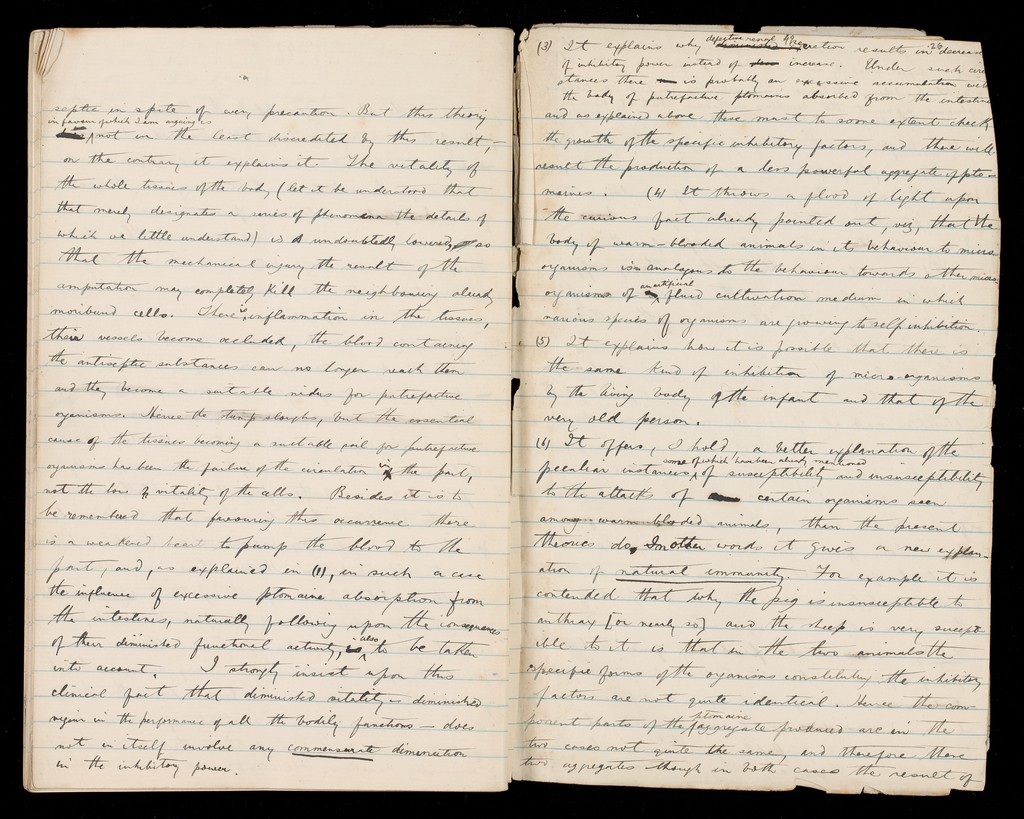 septic in spite of every precaution. But this theory
in favour of which I am arguing is
not in the least discredited by this result, –
on the contrary it explains it. The vitality of
the whole tissues of the body, (let it be understood that
that merely designates a series of phenomena the details of
which we little understand) is undoubtedly lowered, so
that the mechanical injury the result of the
amputation may completely kill the neighbouring already
moribund cells. There is inflammation in the tissues,
their vessels become occluded, the blood containing
the antiseptic substances can no longer reach them
and they become a suitable nidus for putrefactive
organisms. Hence the stump sloughs, but the essential
cause of the tissues becoming a suitable soil for putrefactive
organisms has been the failure of the circulation in the part,
not the low vitality of the cells. Besides it is to
be remembered that favouring this occurrence there
is a weakened heart to pump the blood to the
part, and, as explained in (1), in such a case
the influence of excessive ptomaine absorption from
the intestines, naturally following upon the consequences
of their diminished functional activity, is also to be taken
into account. I strongly insist upon this
clinical fact that diminished vitality – diminished
vigour in the performance of all the bodily functions – does
not in itself involve any commensurate diminution
in the inhibitory power.
26
defective renal
(3) It explains why diminished secretion results in decrease
of inhibitory power instead of increase. Under such circum
stances there is probably an excessive accumulation within
the body of putrefactive ptomaines absorbed from the intestine
and as explained above these must to some extent check
the growth of the specific inhibitory factors, and there will
result the production of a less powerful aggregate of pto-
maines. (4) It throws a flood of light upon
the curious fact already pointed out, viz, that the
body of warm-blooded animals in its behaviour to micro
organisms is analogous to the behaviour towards other micro-
an artificial
organisms of fluid cultivation medium in which
various species of organisms are growing to self inhibition.
(5) It explains how it is possible that there is
the same kind of inhibition of micro-organisms
by the living body of the infant and that of the
very old person.
(6) It offers, I hold, a better explanation of the
some of which have been already mentioned
peculiar instances, of susceptibility and insusceptibility
to the attacks of certain organisms seen
among warm-blooded animals, than the present
theories do. In other words it gives a new explan-
ation of natural immunity. For example it is
contended that why the pig is insusceptible to
anthrax [or nearly so] and the sheep is very suscept-
ible to it is that in the two animals the
specific forms of the organisms constituting the inhibitory
factors are not quite identical. Hence the com-
ptomaine
ponent parts of the aggregate produced are in the
two cases not quite the same, and therefore these
two aggregates though in both cases the result of